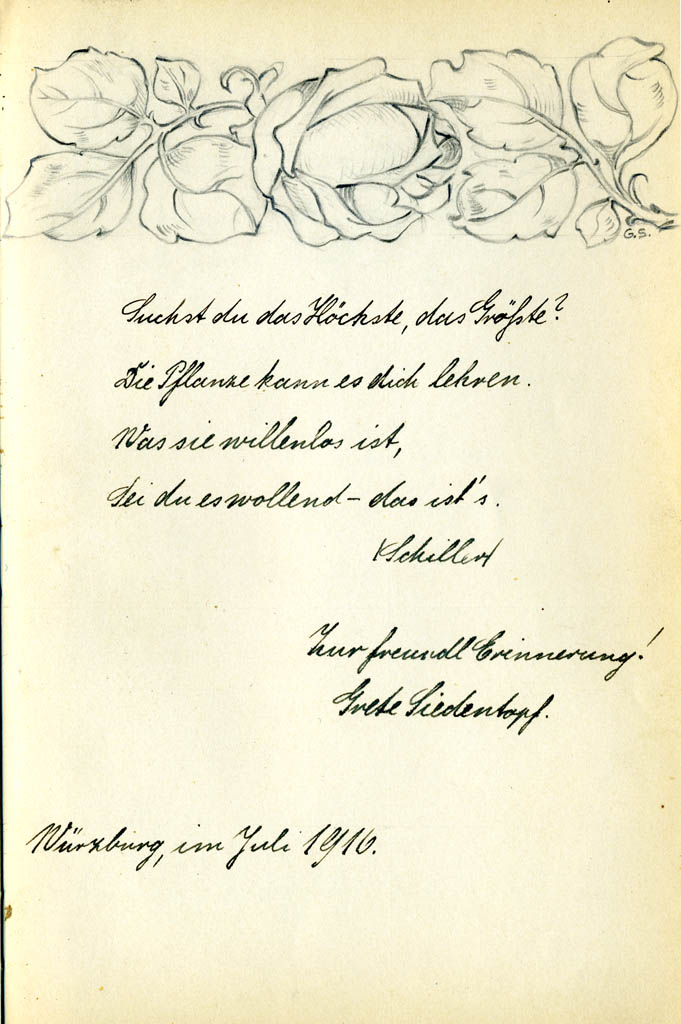 G.S.
Suchst du das Höchste, das Größte?
Die Pflanze kann es dich lehren.
Was sie willenlos ist,
Sei du es wollend – das ist's.
(Schiller)
Zur freundl Erinnerung!
Grete Siedentopf.
Würzburg, im Juli 1916.